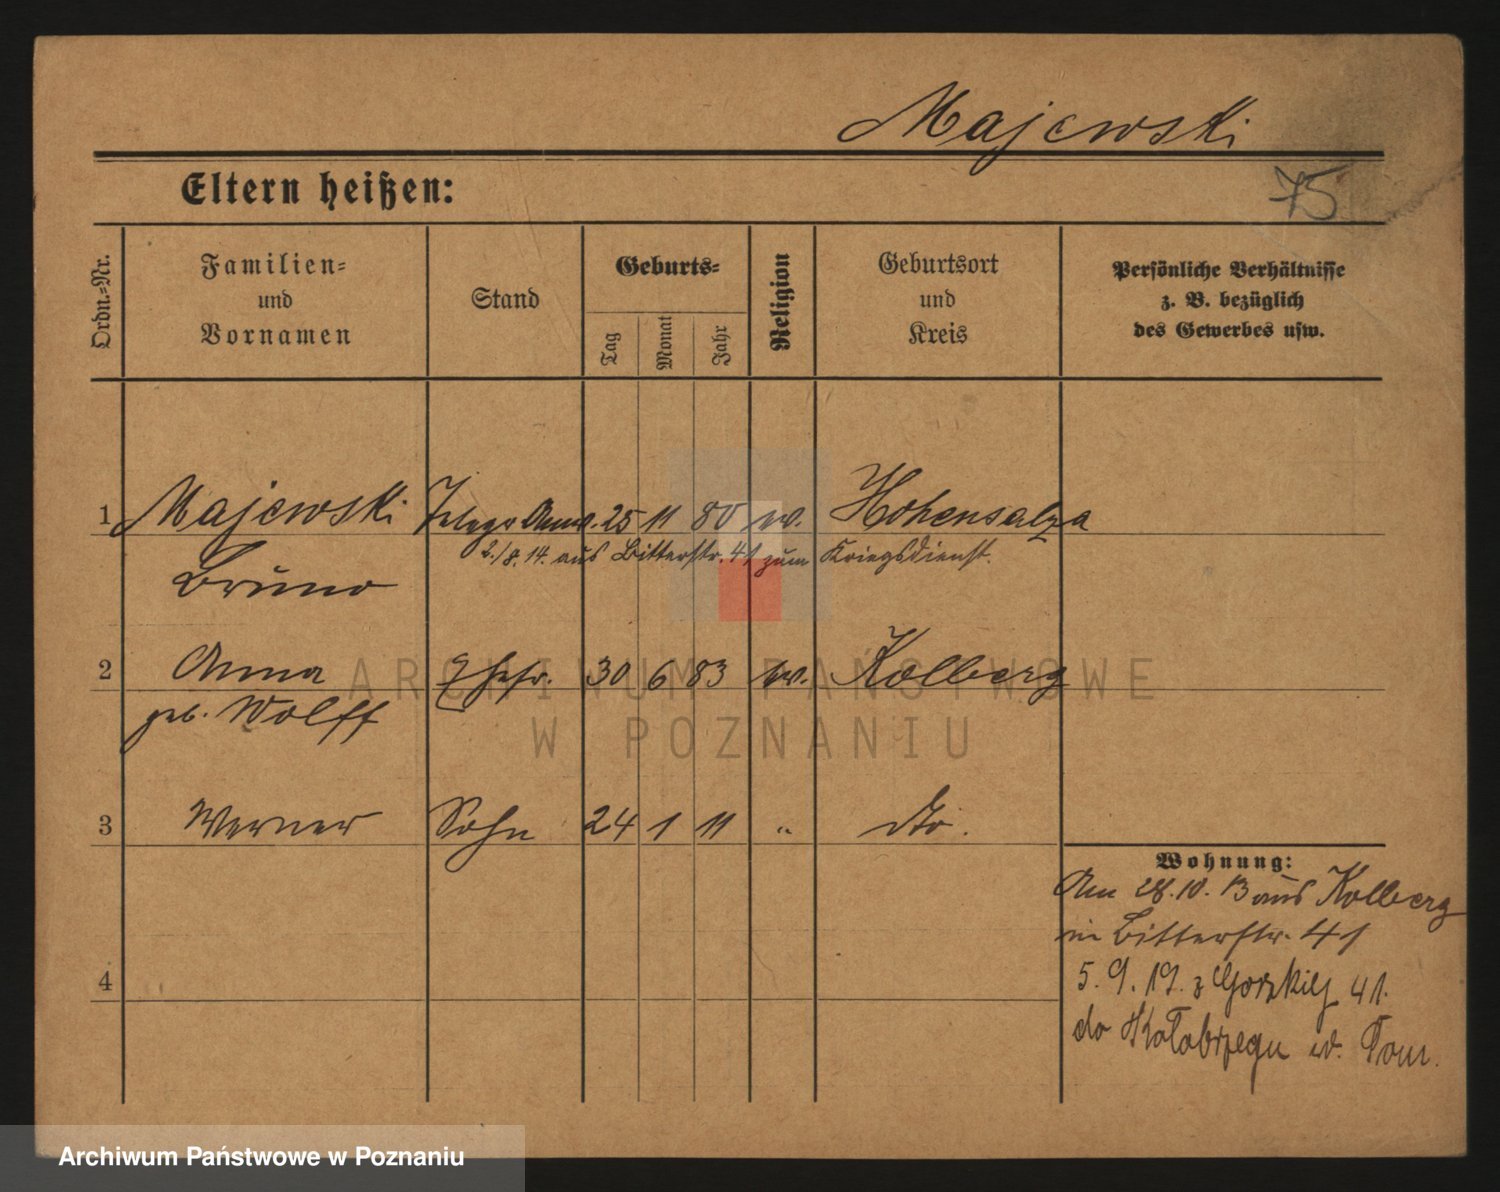 Majewski
Eltern heißen:
75
Ordn.-Nr.
Familien-
und
Vornamen
Stand
Geburts-
Tag
Monat
Jahr
Religion
Geburtsort
und
Kreis
Persönliche Verhältnisse
z. B. bezüglich
des Gewerbes usw.
1 Majewski Telegr Anw. 25 11 80 ev. Hohensalza
2./8. 14. aus Bitterstr. 41 zum Kriegsdienst.
Bruno
2 Anna Ehefr. 30 6 83 ev. Kolberg
geb. Wolff
3 Werner Sohn 24 1 11 " dto.
Wohnung:
Am 28.10.13 aus Kolberg
in Bitterstr. 41
4
5.9.19. z Gorzkiej 41.
do Kołobrzegu w. Pom.
ARCHIWUM PAŃSTWOWE
W POZNANIU
Archiwum Państwowe w Poznaniu